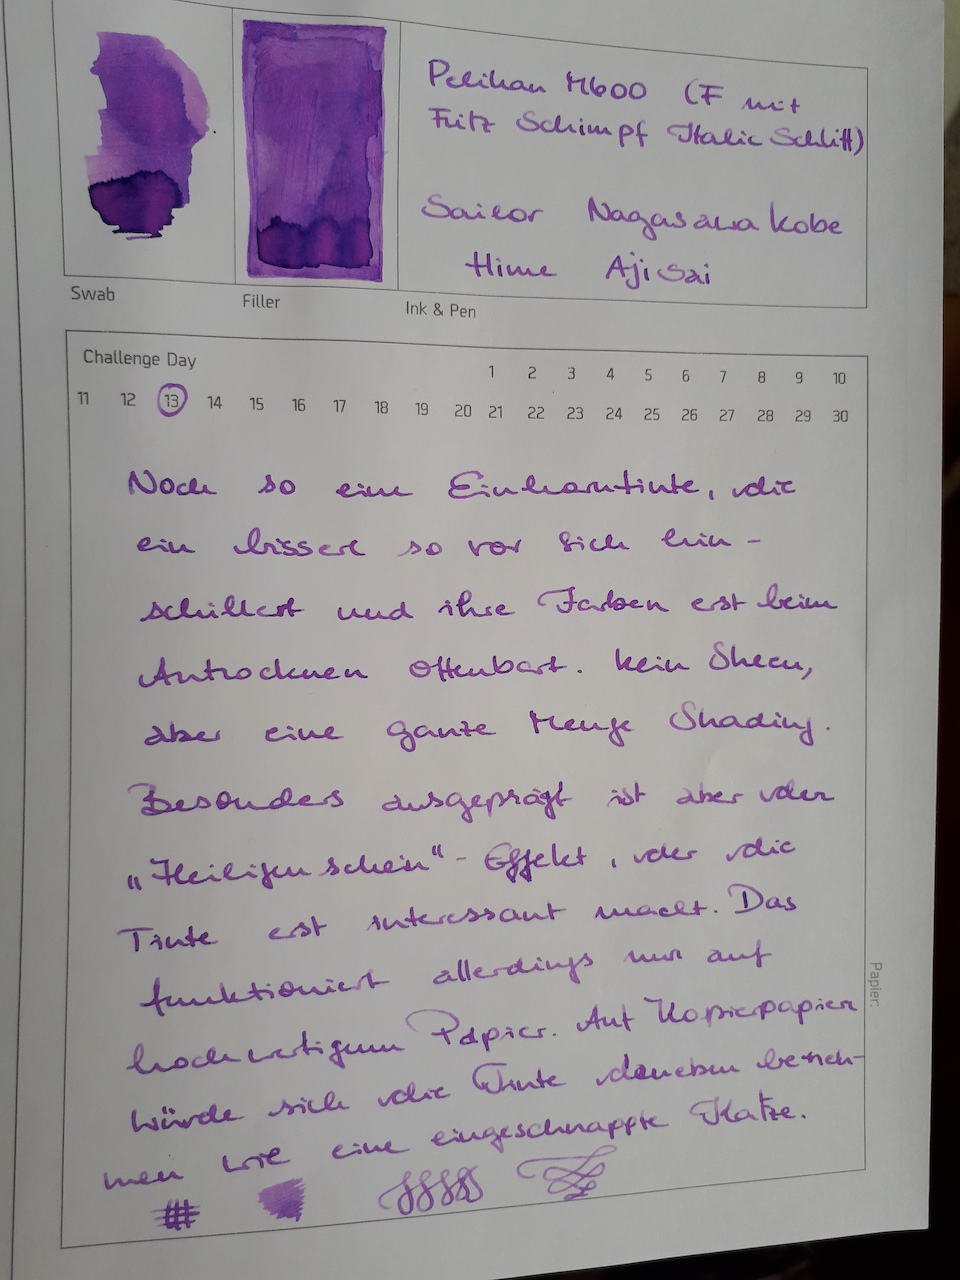 Pelikan M600 (F mit
Fritz Schimpf Italic Schliff)
Sailor Nagasawa Kobe
Hime Ajisai
Swab
Filler
Ink & Pen
Challenge Day
1 2 3 4 5 6 7 8 9 10
11 12 13 14 15 16 17 18 19 20 21 22 23 24 25 26 27 28 29 30
Noch so eine Einhorntinte, die
ein bisserl so vor sich hin-
schillert und ihre Farben erst beim
Antrocknen offenbart. Kein Sheen,
aber eine ganze Menge Shading.
Besonders ausgeprägt ist aber der
„Heiligenschein“-Effekt, der die
Tinte erst interessant macht. Das
funktioniert allerdings nur auf
hochwertigem Papier. Auf Kopierpapier
würde sich die Tinte daneben beneh-
men wie eine eingeschnappte Katze.
Papier: